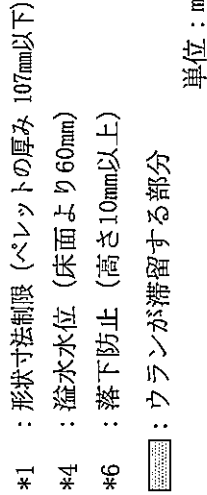 *1 ：形状寸法制限（ペレットの厚み 107mm以下）
*4 ：溢水水位（床面より60mm）
*6 ：落下防止（高さ10mm以上）
：ウランが滞留する部分
単位：m